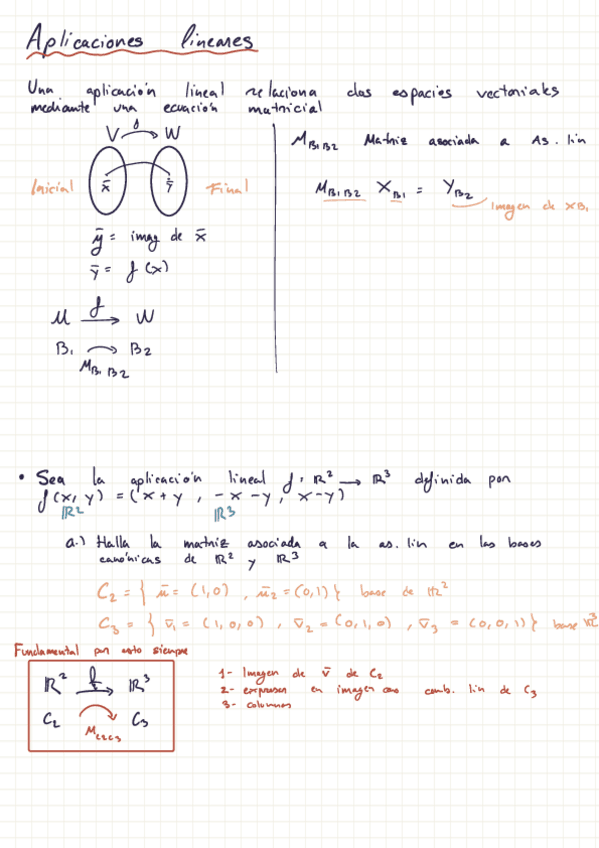 Aplicaciones lineares
Una aplicación lineal relaciona dos espacios vectoriales
mediante una ecuación matricial
f
V → W
Inicial x̄ ȳ Final
ȳ = imag de x̄
ȳ = f(x)
f
U → W
B₁ → B₂
M B₁ B₂
M B₁B₂ Matriz asociada a As. lin
M B₁B₂ X B₁ = Y B₂
Imagen de X B₁
• Sea la aplicación lineal f: ℝ² → ℝ³ definida por
f(x, y) = (x + y, -x - y, x - y)
ℝ² ℝ³
a.) Halla la matriz asociada a la as. lin en las bases
canónicas de ℝ² y ℝ³
C₂ = { ū = (1,0), ū₂ = (0,1)} base de ℝ²
C₃ = { v̄₁ = (1,0,0), v̄₂ = (0,1,0), v̄₃ = (0,0,1)} base ℝ³
Fundamental pon esto siempre
ℝ² f → ℝ³
C₂ → C₃
M C₂C₃
1- Imagen de v̄ de C₂
2- expresar en imagen como comb. lin de C₃
3- columnas